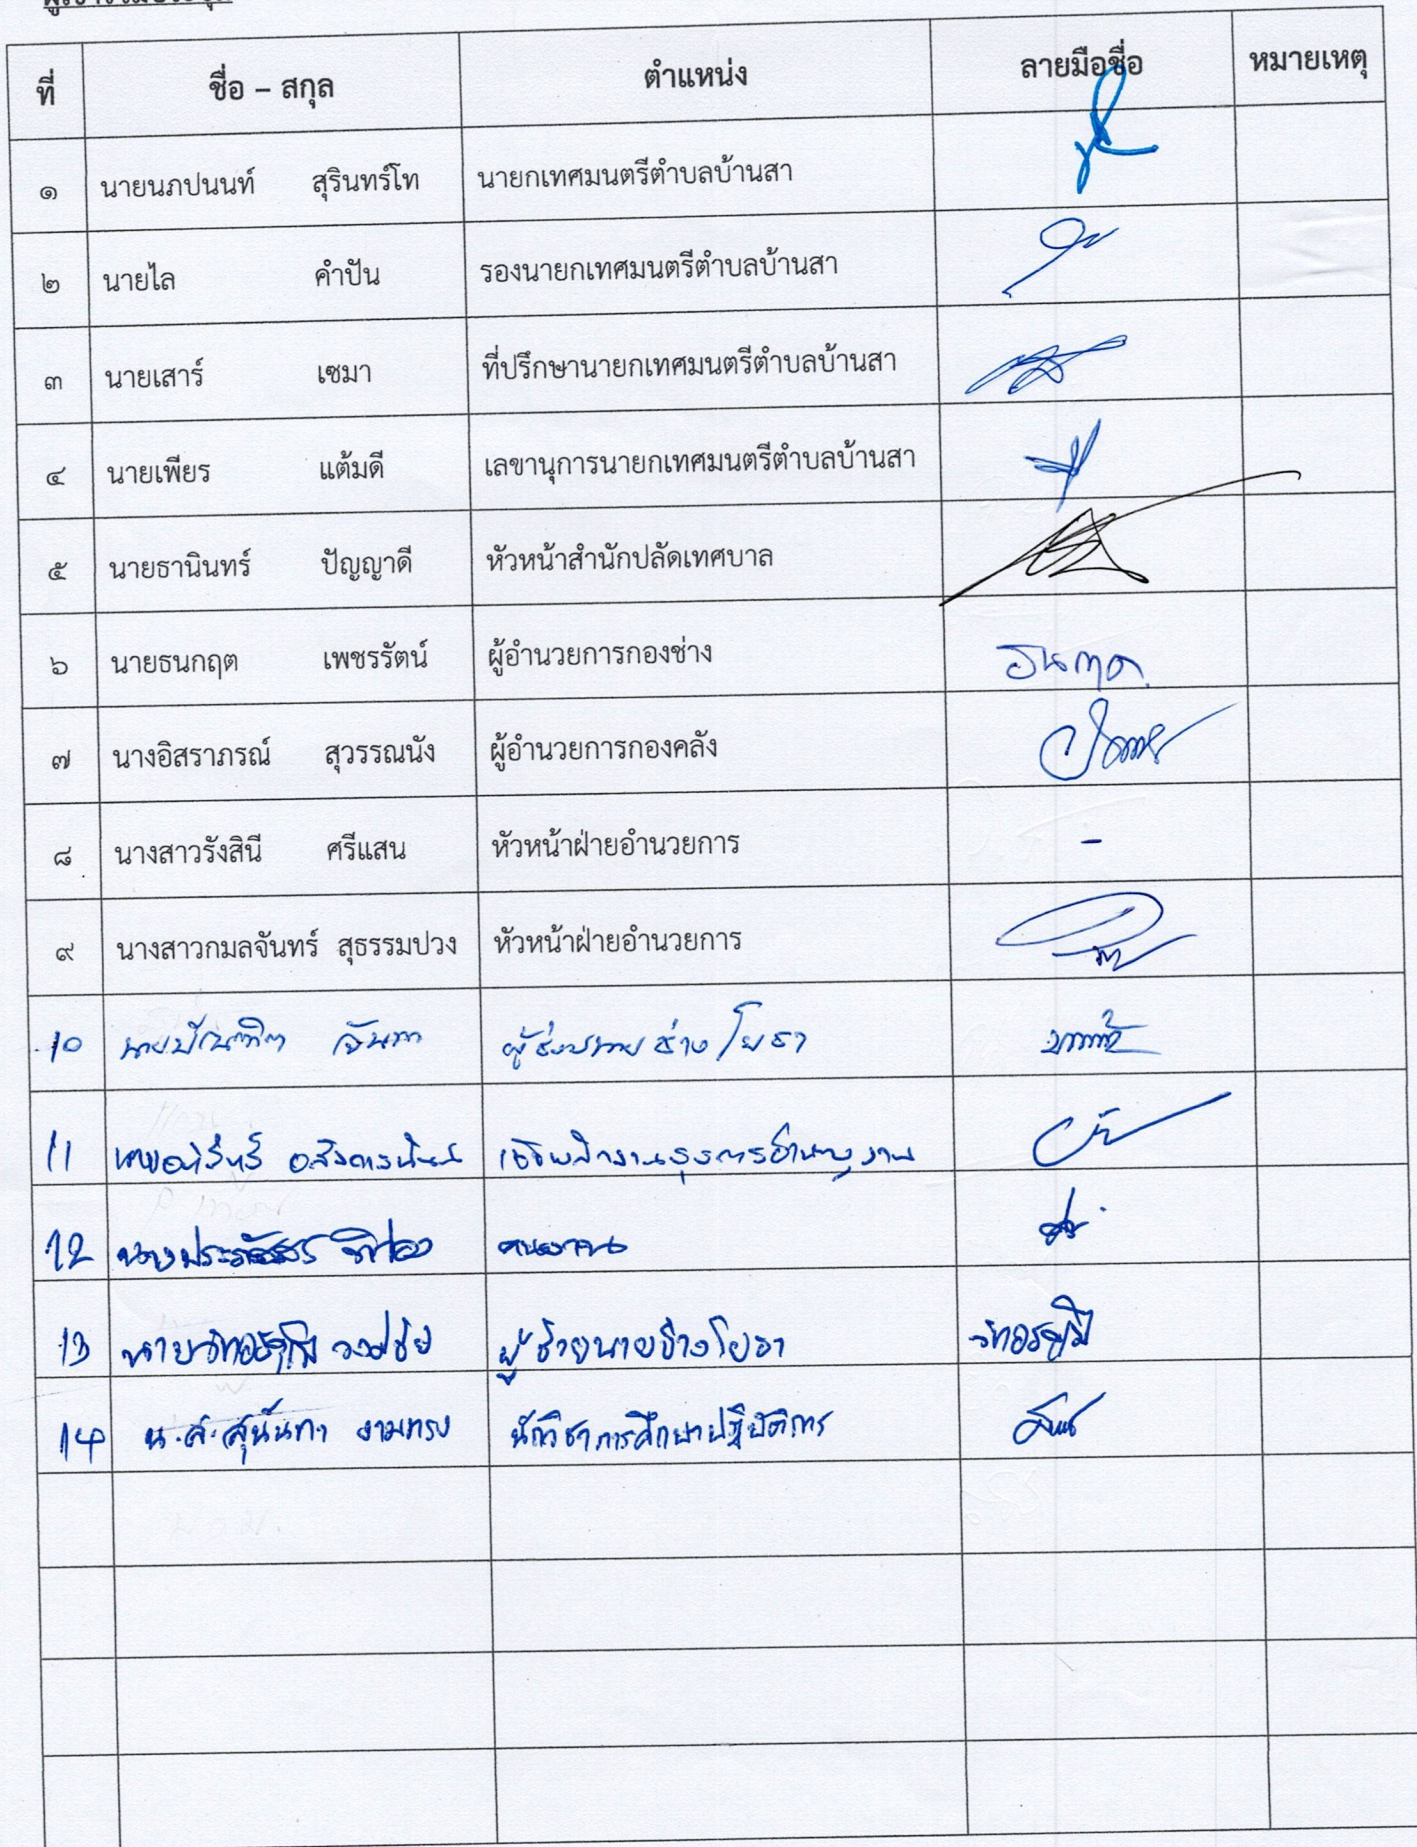 ที่ ชื่อ – สกุล ตำแหน่ง ลายมือชื่อ หมายเหตุ
๑ นายนภปนนท์ สุรินทร์โท นายกเทศมนตรีตำบลบ้านสา
๒ นายไล คำปัน รองนายกเทศมนตรีตำบลบ้านสา
๓ นายเสาร์ เซมา ที่ปรึกษานายกเทศมนตรีตำบลบ้านสา
๔ นายเพียร แต้มดี เลขานุการนายกเทศมนตรีตำบลบ้านสา
๕ นายธานินทร์ ปัญญาดี หัวหน้าสำนักปลัดเทศบาล
๖ นายธนกฤต เพชรรัตน์ ผู้อำนวยการกองช่าง ธนกฤต
๗ นางอิสราภรณ์ สุวรรณนัง ผู้อำนวยการกองคลัง
๘ นางสาวรังสินี ศรีแสน หัวหน้าฝ่ายอำนวยการ -
๙ นางสาวกมลจันทร์ สุธรรมปวง หัวหน้าฝ่ายอำนวยการ
10 นายบัณฑิต จันทา ผู้ช่วยนายช่างโยธา
11
12 นางประภัสสร คนงาน
13 ผู้ช่วยนายช่างโยธา
14 น.ส.สุนันทา งามทรง นักวิชาการศึกษาปฏิบัติการ